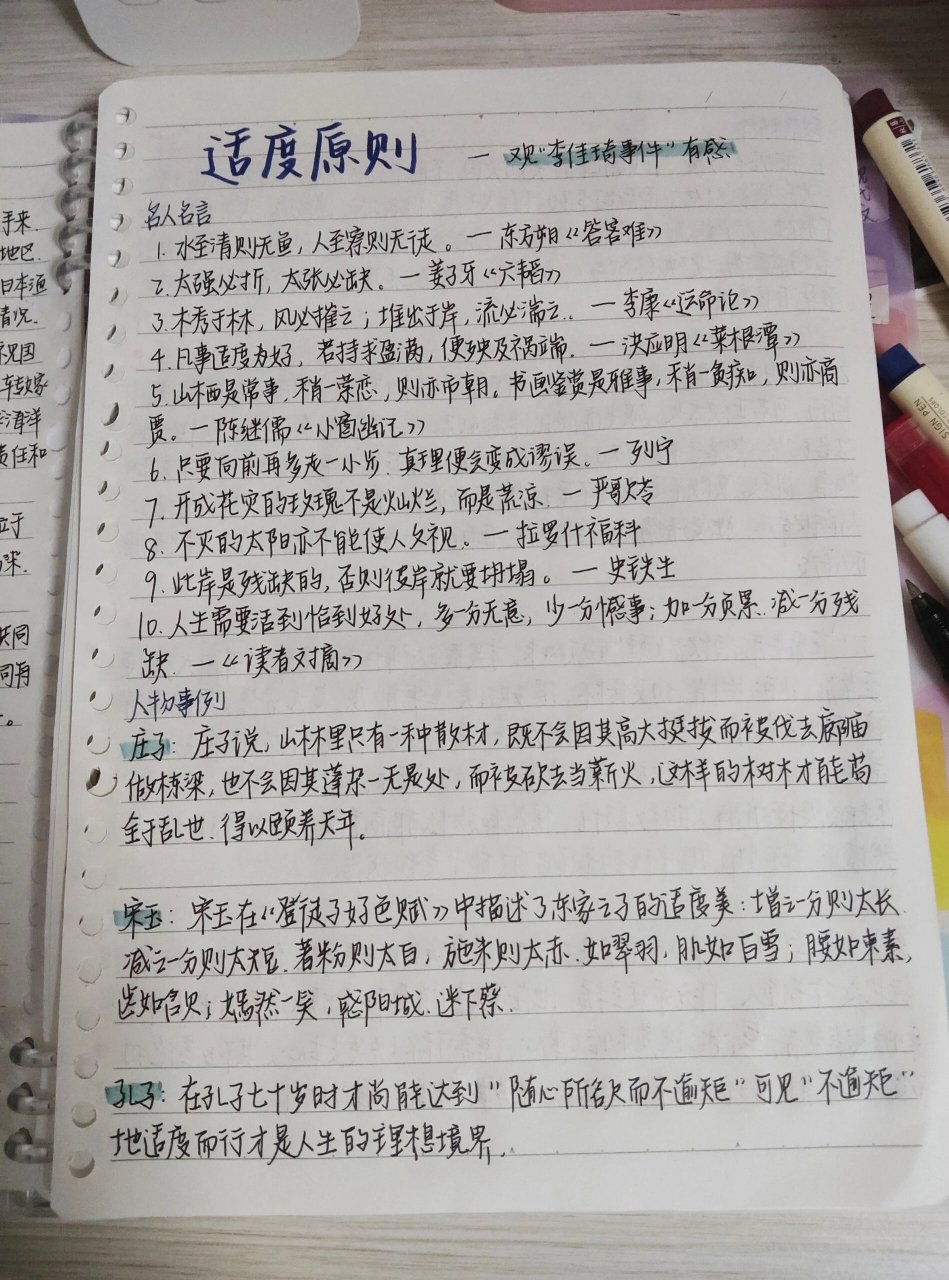 适度原则 — 观“李佳琦事件”有感
名人名言
1. 水至清则无鱼,人至察则无徒。—东方朔《答客难》
2. 太强必折,太张必缺。—姜子牙《六韬》
3. 木秀于林,风必摧之;堆出于岸,流必湍之. —李康《运命论》
4. 凡事适度为好,若持求盈满,便殃及祸端. —洪应明《菜根潭》
5. 山栖是常事,稍一萦恋,则亦市朝。书画鉴赏是雅事,稍一贪痴,则亦商
贾。—陈继儒《小窗幽记》
6. 只要向前再多走一小步.真理便会变成谬误。—列宁
7. 开成花灾的玫瑰不是灿烂,而是荒凉. —严歌苓
8. 不灭的太阳亦不能使人久视。—拉罗什福科
9. 此岸是残缺的,否则彼岸就要坍塌。—史铁生
10. 人生需要活到恰到好处,多一分无意,少一分憾事;加一分负累.减一分残
缺. —《读者文摘》
人物事例
庄子:庄子说,山林里只有一种散材,既不会因其高大挺拔而被伐去廊庙
做栋梁,也不会因其蓬杂一无是处,而被砍去当薪火,这样的树木才能苟
全于乱世.得以颐养天年。
宋玉:宋玉在《登徒子好色赋》中描述了东家之子的适度美:增之一分则太长.
减之一分则太短.著粉则太白,施朱则太赤.如翠羽,肌如白雪;腰如束素,
齿如含贝;嫣然一笑,惑阳城.迷下蔡.
孔子:在孔子七十岁时才尚能达到“随心所欲而不逾矩”可见“不逾矩”
地适度而行才是人生的理想境界.
手来.
地区.
日本渔
情况.
海洋
责任和
立于
共同
同再
SIGN PEN